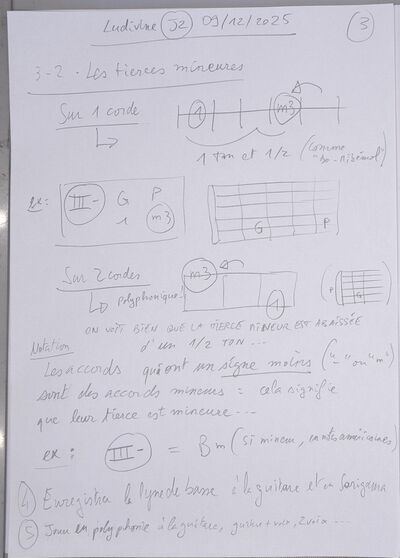 Ludivine J2 09/12/2025
3
3-2. Les tierces mineures
Sur 1 corde
1 m3
1 ton et 1/2 (comme
"do-mibémol")
ex: III- G P
1 m3
G P
Sur 2 cordes
m3
1
P G
polyphonique!
ON VOIT BIEN QUE LA TIERCE MINEUR EST ABAISSÉE
D'UN 1/2 TON...
Notation
Les accords qui ont un signe moins ("-" ou "m")
sont des accords mineurs = cela signifie
que leur tierce est mineure...
ex: III- = Bm (si mineur, en notes américaines)
4 Enregistrer la lyne de basse à la guitare et en Sarigama
5 Jouer en polyphonie à la guitare, guitare + voix, 2 voix...